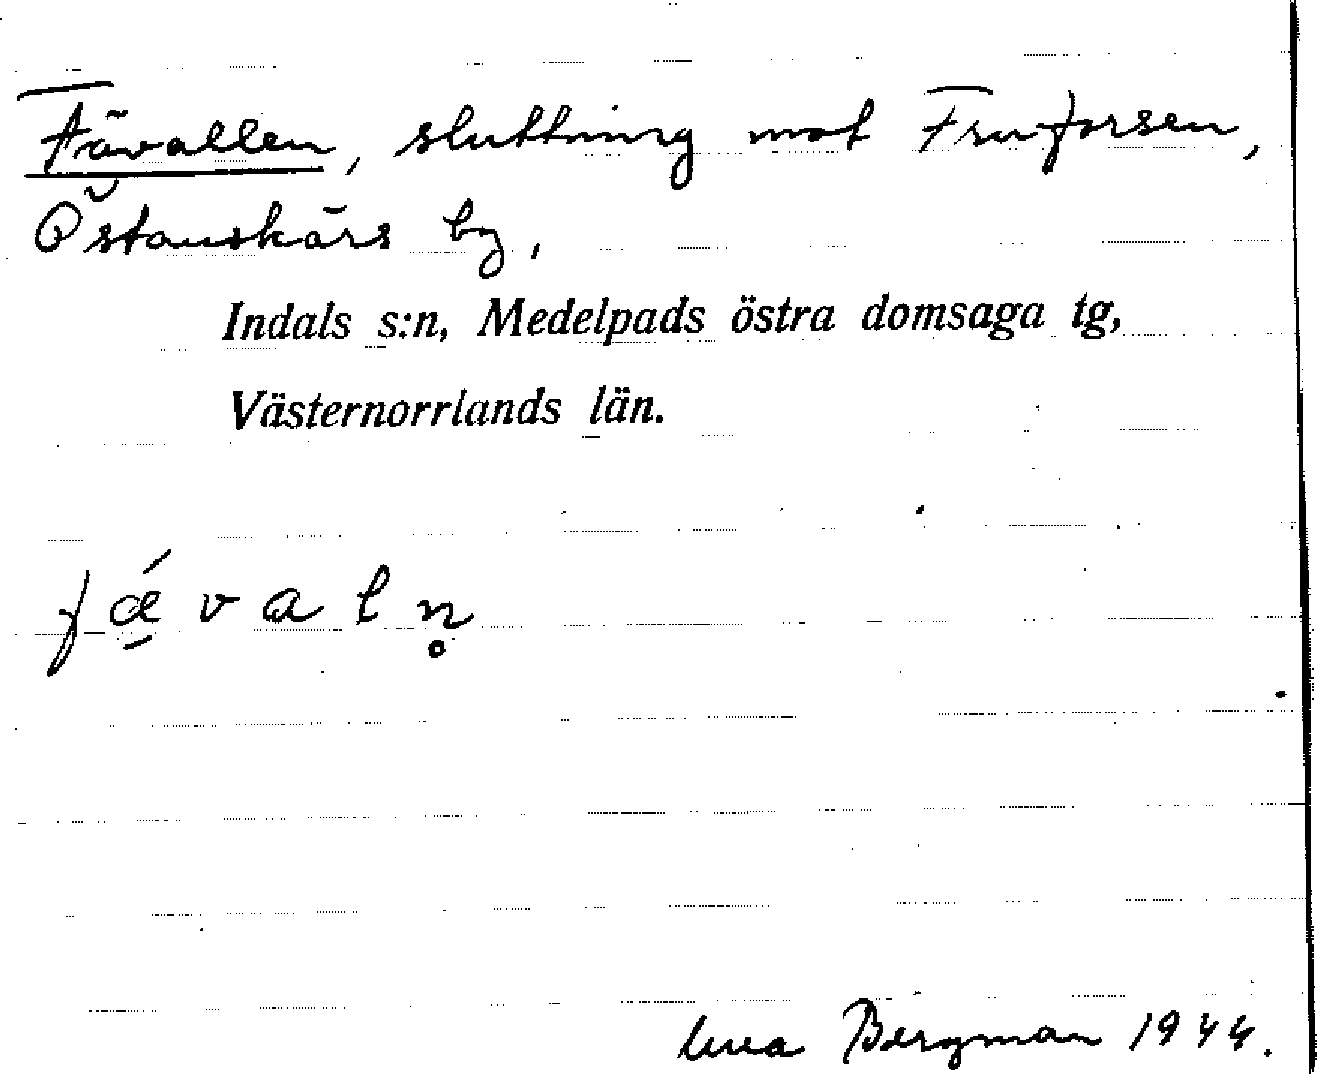 Fävallen, sluttning mot Fruforsen,
Östanskärs by,
Indals s:n, Medelpads östra domsaga tg,
Västernorrlands län.
fǽ̱valn̥
Bergman 1944.